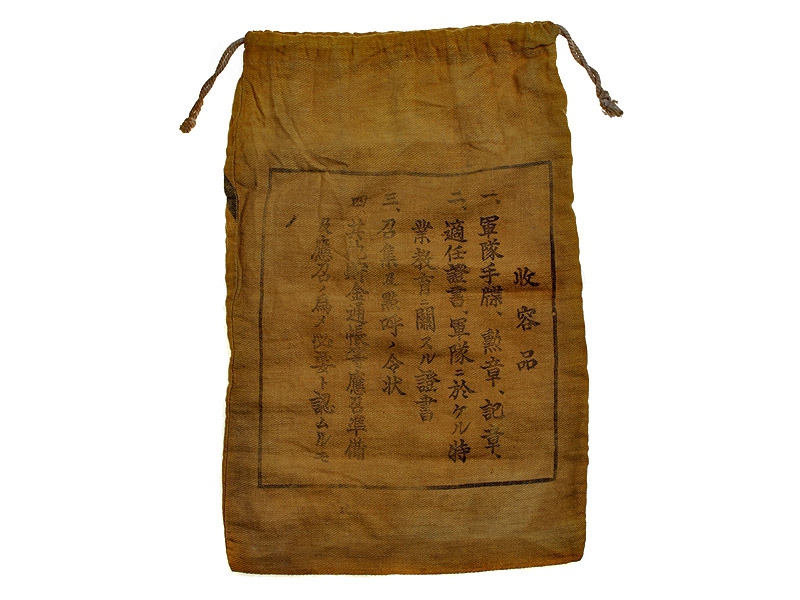 收容品
一、軍隊手牒、勲章、記章、
二、適任證書、軍隊ニ於ケル特
業教育ニ關スル證書
三、召集及點呼ノ令状
四 其 金通帳等應召準備
及應召ノ爲メ必要ト認ムルモ
ノ